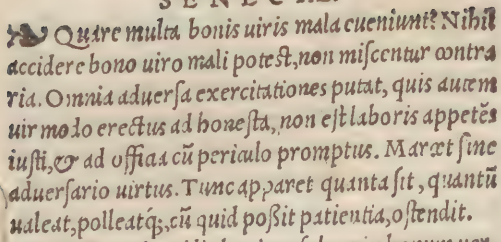 SENECAE
Quare multa bonis uiris mala eueniunt? Nihil
accidere bono uiro mali potest, non miscentur contra
ria. Omnia aduersa exercitationes putat, quis autem
uir modo erectus ad honesta, non est laboris appetẽs
iusti, & ad officia cũ periculo promptus. Marcet sine
aduersario uirtus. Tunc apparet quanta sit, quantũ
ualeat, polleatq;, cũ quid poßit patientia, ostendit.